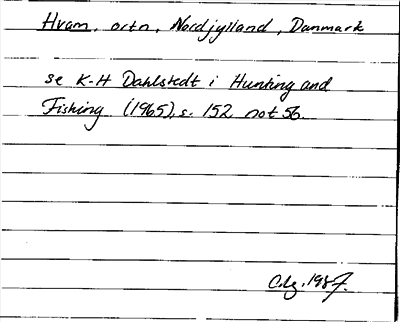 Hvam, ortn, Nordjylland, Danmark
se K-H Dahlstedt i Hunting and
Fishing (1965), s. 152 not 56.
C.lg. 1987.